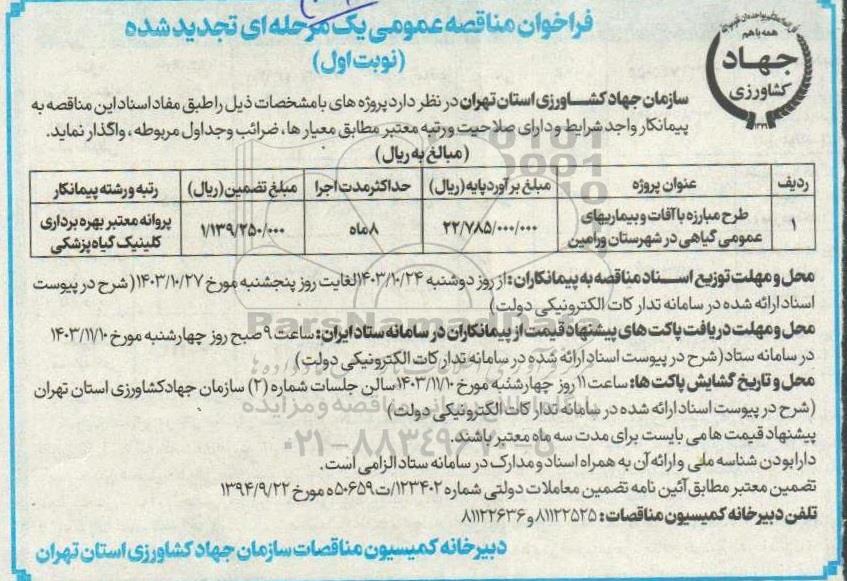 فراخوان مناقصه عمومی یک مرحله ای تجدید شده
(نوبت اول)
همه با هم
جهاد
کشاورزی
سازمان جهاد کشاورزی استان تهران در نظر دارد پروژه های با مشخصات ذیل را طبق مفاد اسناد این مناقصه به
پیمانکار واجد شرایط و دارای صلاحیت و رتبه معتبر مطابق معیار ها، ضرائب و جداول مربوطه، واگذار نماید.
(مبالغ به ریال)
ردیف عنوان پروژه مبلغ برآورد پایه (ریال) حداکثر مدت اجرا مبلغ تضمین (ریال) رتبه و رشته پیمانکار
۱ طرح مبارزه با آفات و بیماریهای عمومی گیاهی در شهرستان ورامین ۲۲/۷۸۵/۰۰۰/۰۰۰ ۸ ماه ۱/۱۳۹/۲۵۰/۰۰۰ پروانه معتبر بهره برداری کلینیک گیاه پزشکی
محل و مهلت توزیع اسناد مناقصه به پیمانکاران: از روز دوشنبه ۱۴۰۳/۱۰/۲۴ لغایت روز پنجشنبه مورخ ۱۴۰۳/۱۰/۲۷ (شرح در پیوست
اسناد ارائه شده در سامانه تدارکات الکترونیکی دولت)
محل و مهلت دریافت پاکت های پیشنهاد قیمت از پیمانکاران در سامانه ستاد ایران: ساعت ۹ صبح روز چهارشنبه مورخ ۱۴۰۳/۱۱/۱۰
در سامانه ستاد (شرح در پیوست اسناد ارائه شده در سامانه تدارکات الکترونیکی دولت)
محل و تاریخ گشایش پاکت ها: ساعت ۱۱ روز چهارشنبه مورخ ۱۴۰۳/۱۱/۱۰ سالن جلسات شماره (۲) سازمان جهاد کشاورزی استان تهران
(شرح در پیوست اسناد ارائه شده در سامانه تدارکات الکترونیکی دولت)
پیشنهاد قیمت ها می بایست برای مدت سه ماه معتبر باشند.
دارا بودن شناسه ملی و ارائه آن به همراه اسناد و مدارک در سامانه ستاد الزامی است.
تضمین معتبر مطابق آئین نامه تضمین معاملات دولتی شماره ۱۲۳۴۰۲/ت۵۰۶۵۹ه مورخ ۱۳۹۴/۹/۲۲
تلفن دبیرخانه کمیسیون مناقصات: ۸۱۱۲۲۵۲۵ و ۸۱۱۲۲۶۳۶
دبیرخانه کمیسیون مناقصات سازمان جهاد کشاورزی استان تهران
ParsNamadData
۰۲۱-۸۸۳۴۹۶۷۰-۵